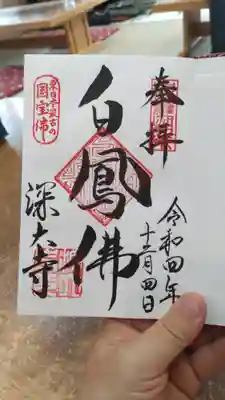 奉拝
令和四年
十二月四日
東日本最古の
国宝佛
白鳳佛
深大寺